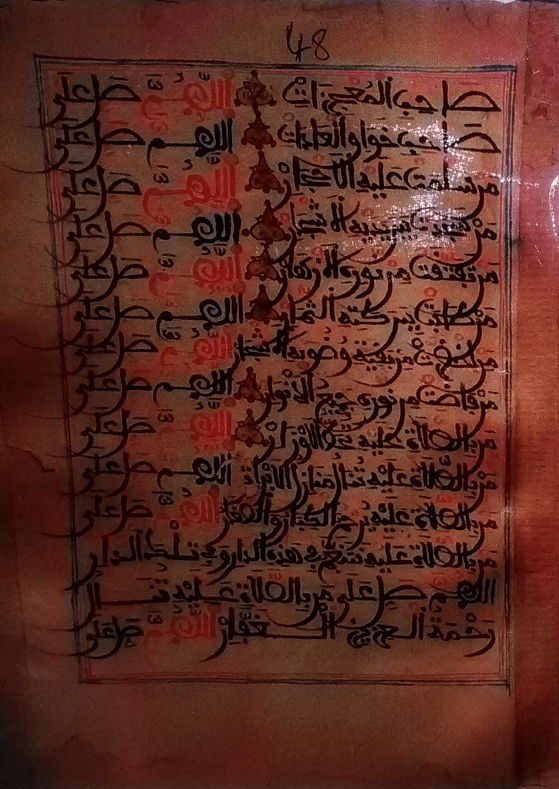 48
صاحب المعجزات اللهم صل على
صاحب خوارق العادات اللهم صل على
من سلمت عليه الأحجار اللهم صل على
من سجدت بين يديه الأشجار اللهم صل على
من تفتقت من نوره الأزهار اللهم صل على
من طابت ببركته الثمار اللهم صل على
من اخضرت من بقية وضوئه الأشجار اللهم صل على
من فاضت من نوره جميع الأنوار اللهم صل على
من بالصلاة عليه تحط الأوزار اللهم صل على
من بالصلاة عليه تنال منازل الأبرار اللهم صل على
من بالصلاة عليه يرحم الكبار والصغار اللهم صل على
من بالصلاة عليه نتنعم في هذه الدار وفي تلك الدار
اللهم صل على من بالصلاة عليه تنال
رحمة العزيز الغفار اللهم صل على